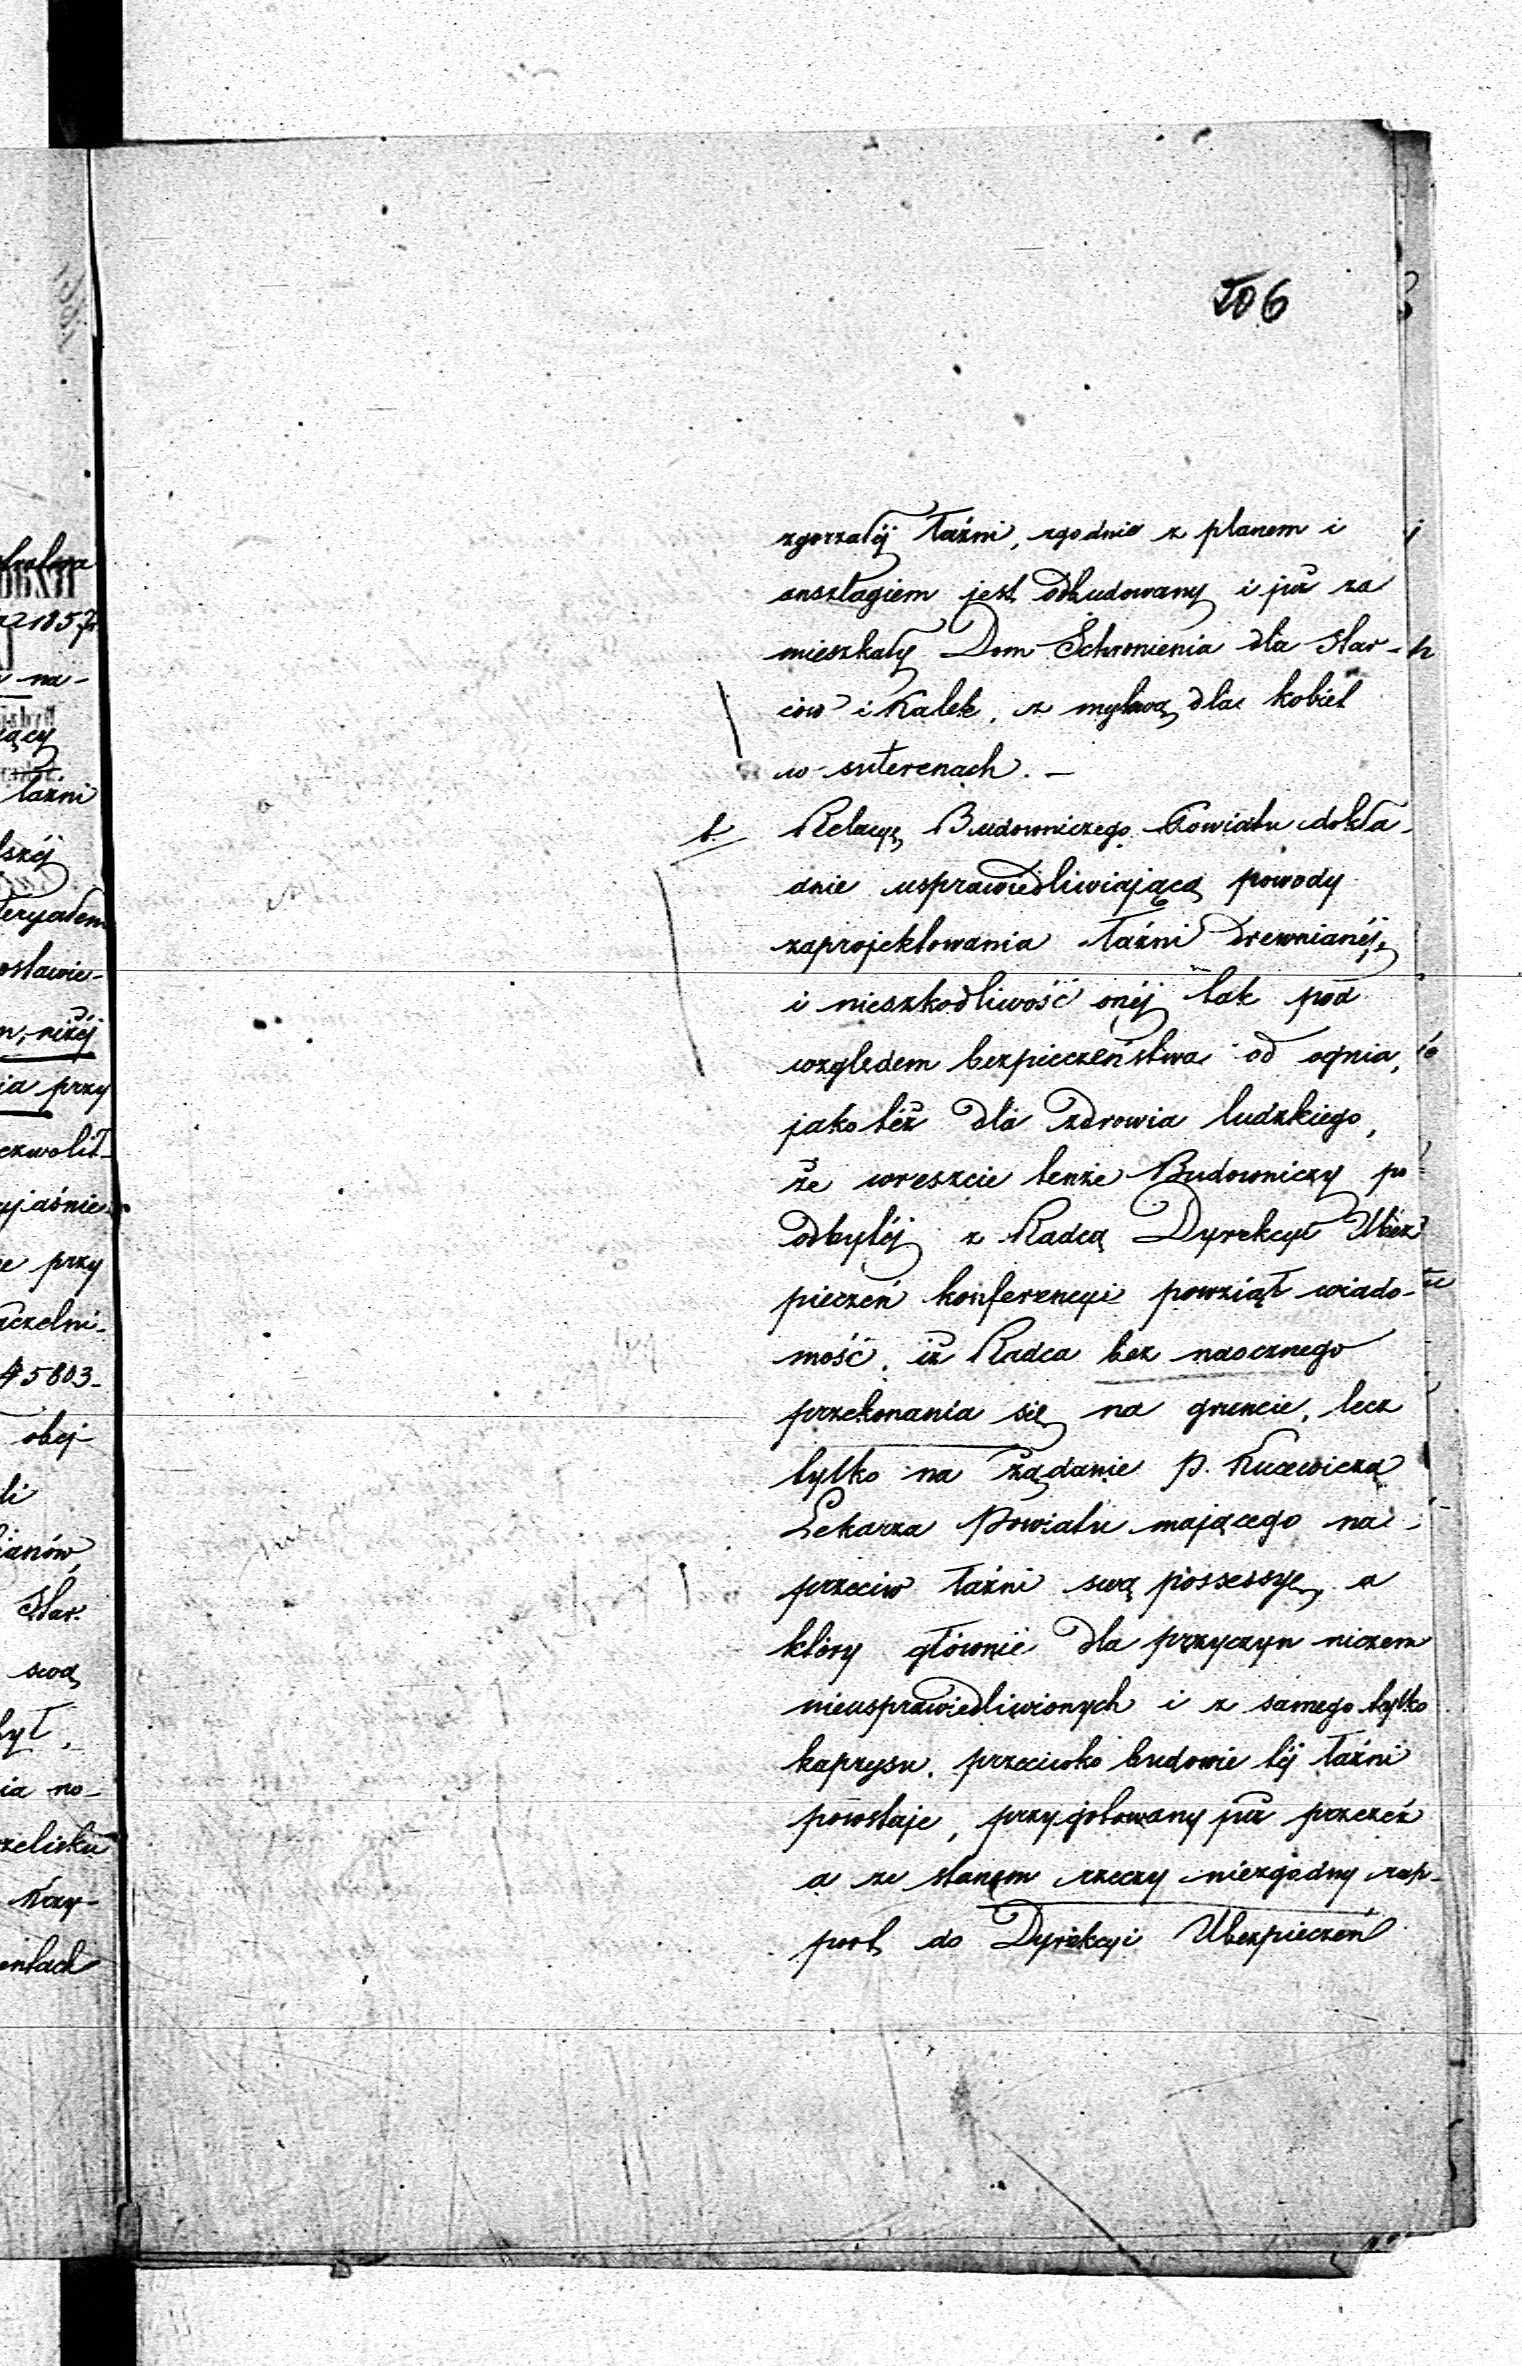 206
zgorzałéj łaźni, zgodnie z planem i
anszlagiem jest odbudowany i już za
mieszkały Dom Schronienia dla Star-
ców i Kalek, z mykwą dla kobiet
w suterenach. —
b. Relacyę Budowniczego Powiatu dokła-
dnie usprawiedliwiającą powody
zaprojektowania łaźni drewnianéj,
i nieszkodliwość onéj tak pod
względem bezpieczeństwa od ognia,
jako też dla zdrowia ludzkiego,
że wreszcie tenże Budowniczy po
odbytéj z Radcą Dyrekcyi Ubez
pieczeń konferencyi powziął wiado-
mość, iż Radca bez naocznego
przekonania się na gruncie, lecz
tylko na żądanie P. Kucewicza
Lekarza Powiatu mającego na-
przeciw łaźni swą possessyę, a
który głównie dla przyczyn niczem
nieusprawiedliwionych i z samego tylko
kaprysu, przeciwko budowie téj łaźni
powstaje, przygotowany już przezeń
a ze stanem rzeczy niezgodny rap-
port do Dyrekcyi Ubezpieczeń
1857
na-
łaźni
niżéj
przy
przy
45803-
obéj-
Star.
swą